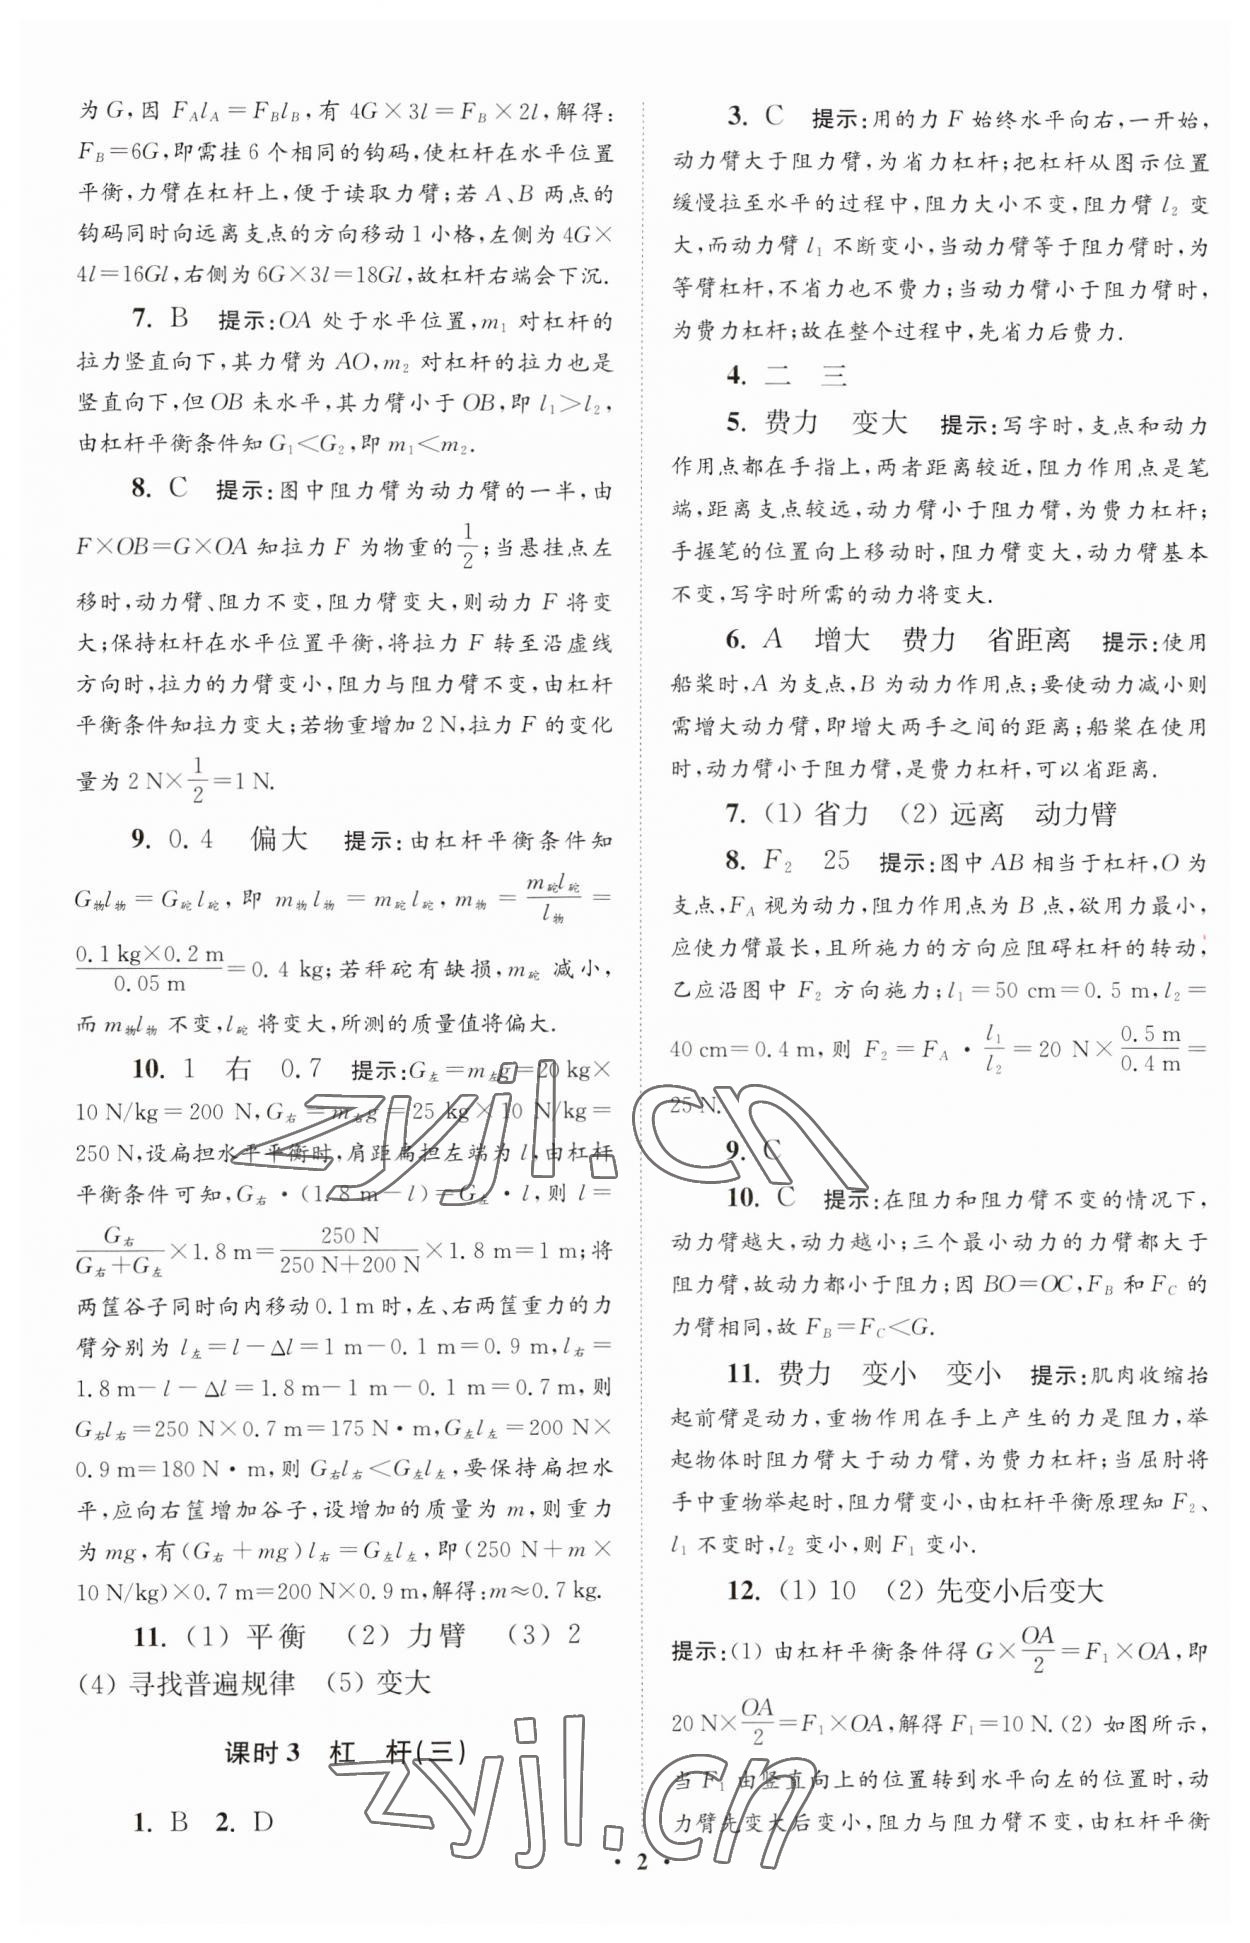 为 G,因 F_A l_A=F_B l_B,有 4G×3l=F_B×2l,解得:
F_B=6G,即需挂 6 个相同的钩码,使杠杆在水平位置
平衡,力臂在杠杆上,便于读取力臂;若 A、B 两点的
钩码同时向远离支点的方向移动 1 小格,左侧为 4G×
4l=16Gl,右侧为 6G×3l=18Gl,故杠杆右端会下沉.
7. B 提示:OA 处于水平位置,m₁ 对杠杆的
拉力竖直向下,其力臂为 AO,m₂ 对杠杆的拉力也是
竖直向下,但 OB 未水平,其力臂小于 OB,即 l₁>l₂,
由杠杆平衡条件知 G₁<G₂,即 m₁<m₂.
8. C 提示:图中阻力臂为动力臂的一半,由
F×OB=G×OA 知拉力 F 为物重的 1/2;当悬挂点左
移时,动力臂、阻力不变,阻力臂变大,则动力 F 将变
大;保持杠杆在水平位置平衡,将拉力 F 转至沿虚线
方向时,拉力的力臂变小,阻力与阻力臂不变,由杠杆
平衡条件知拉力变大;若物重增加 2 N,拉力 F 的变化
量为 2 N×1/2=1 N.
9. 0.4 偏大 提示:由杠杆平衡条件知
G物l物=G砣l砣,即 m物l物=m砣l砣,m物=m砣l砣/l物=
0.1 kg×0.2 m/0.05 m=0.4 kg;若秤砣有缺损,m砣 减小,
而 m物l物 不变,l砣 将变大,所测的质量值将偏大.
10. 1 右 0.7 提示:G左=m左g=20 kg×
10 N/kg=200 N,G右=m右g=25 kg×10 N/kg=
250 N,设扁担水平平衡时,肩距扁担左端为 l,由杠杆
平衡条件可知,G右·(1.8 m-l)=G左·l,则 l=
G右/(G右+G左)×1.8 m=250 N/(250 N+200 N)×1.8 m=1 m;将
两筐谷子同时向内移动 0.1 m 时,左、右两筐重力的力
臂分别为 l左=l-Δl=1 m-0.1 m=0.9 m,l右=
1.8 m-l-Δl=1.8 m-1 m-0.1 m=0.7 m,则
G右l右=250 N×0.7 m=175 N·m,G左l左=200 N×
0.9 m=180 N·m,则 G右l右<G左l左,要保持扁担水
平,应向右筐增加谷子,设增加的质量为 m,则重力
为 mg,有(G右+mg)l右=G左l左,即(250 N+m×
10 N/kg)×0.7 m=200 N×0.9 m,解得:m≈0.7 kg.
11. (1) 平衡 (2) 力臂 (3) 2
(4) 寻找普遍规律 (5) 变大
课时 3 杠 杆(三)
1. B 2. D
3. C 提示:用的力 F 始终水平向右,一开始,
动力臂大于阻力臂,为省力杠杆;把杠杆从图示位置
缓慢拉至水平的过程中,阻力大小不变,阻力臂 l₂ 变
大,而动力臂 l₁ 不断变小,当动力臂等于阻力臂时,为
等臂杠杆,不省力也不费力;当动力臂小于阻力臂时,
为费力杠杆;故在整个过程中,先省力后费力.
4. 二 三
5. 费力 变大 提示:写字时,支点和动力
作用点都在手指上,两者距离较近,阻力作用点是笔
端,距离支点较远,动力臂小于阻力臂,为费力杠杆;
手握笔的位置向上移动时,阻力臂变大,动力臂基本
不变,写字时所需的动力将变大.
6. A 增大 费力 省距离 提示:使用
船桨时,A 为支点,B 为动力作用点;要使动力减小则
需增大动力臂,即增大两手之间的距离;船桨在使用
时,动力臂小于阻力臂,是费力杠杆,可以省距离.
7. (1) 省力 (2) 远离 动力臂
8. F₂ 25 提示:图中 AB 相当于杠杆,O 为
支点,F_A 视为动力,阻力作用点为 B 点,欲用力最小,
应使力臂最长,且所施力的方向应阻碍杠杆的转动,
乙应沿图中 F₂ 方向施力;l₁=50 cm=0.5 m,l₂=
40 cm=0.4 m,则 F₂=F_A·l₁/l₂=20 N×0.5 m/0.4 m=
25 N.
9. C
10. C 提示:在阻力和阻力臂不变的情况下,
动力臂越大,动力越小;三个最小动力的力臂都大于
阻力臂,故动力都小于阻力;因 BO=OC,F_B 和 F_C 的
力臂相同,故 F_B=F_C<G.
11. 费力 变小 变小 提示:肌肉收缩抬
起前臂是动力,重物作用在手上产生的力是阻力,举
起物体时阻力臂大于动力臂,为费力杠杆;当屈肘将
手中重物举起时,阻力臂变小,由杠杆平衡原理知 F₂、
l₁ 不变时,l₂ 变小,则 F₁ 变小.
12. (1) 10 (2) 先变小后变大
提示:(1) 由杠杆平衡条件得 G×OA/2=F₁×OA,即
20 N×OA/2=F₁×OA,解得 F₁=10 N.(2) 如图所示,
当 F₁ 由竖直向上的位置转到水平向左的位置时,动
力臂先变大后变小,阻力与阻力臂不变,由杠杆平衡
· 2 ·
zyjl.cn
zyjl.cn